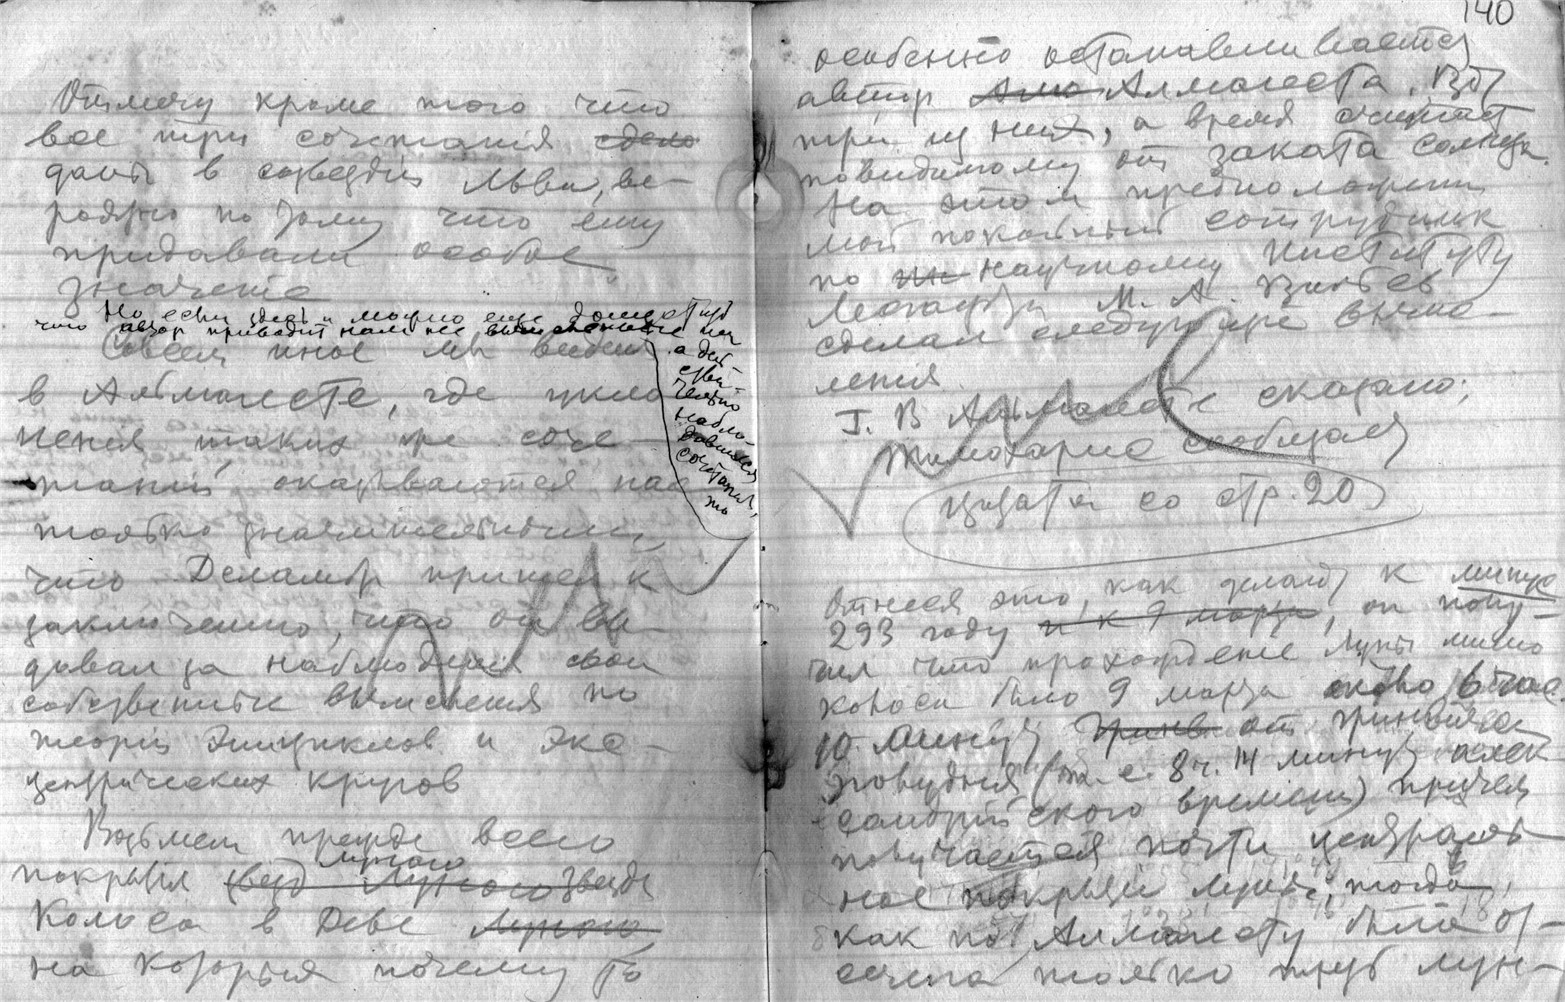 Отмечу кроме того что
все три сочетания сдела
даны в созвездии Льва, ве-
роятно по тому что ему
придавали особое
значение
Но если здесь и можно еще допустить
что автор приводит нам не вычисленные им
а дей-
стви-
тельно
наблю-
давшиеся
сочетания,
то
Совсем иное мы видим
в Альмагесте, где
таких же соче-
таний оказываются нас-
только
что Деламбр пришел к
заключению, что он вы-
давал за наблюдения свои
собственные вычисления по
теории эпициклов и экс-
центрических кругов
Возьмем прежде всего
покрытия луною звезды
Колоса в Деве луною
на которыя почему то
140
особенно останавливается
автор Альмагеста. Вот
три из них, а время считает
повидимому от заката солнца.
На этом предположении
мой покойный сотрудник
по научному Институту
Лесгафта М. А. Вильев
сделал следующие вычис-
ления
I. В Альмагесте сказано:
Тимохарис сообщает
цитата со стр. 20
Отнеся это, как делают к минус
293 году и к 9 марта, он полу-
чил что прохождение луны мимо
колоса было 9 марта около 6 час
10 минут от гринвичск
полудня (т. е. 8 ч. 14 минут алек-
сандрийского времени) причем
получается почти централь-
ное покрытие луною, тогда
как по Алмагесту была от-
сечена только треть лун-